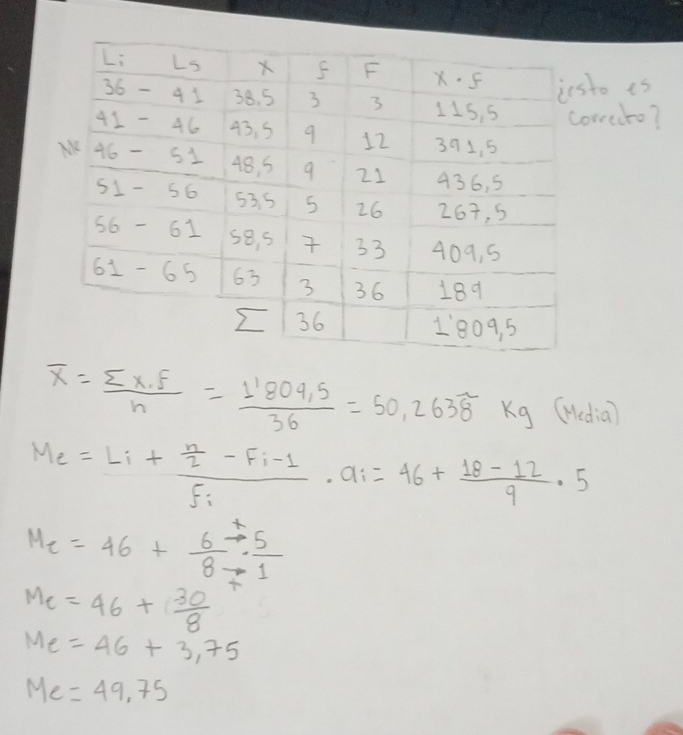 Li Ls X f F X · f
36 - 41 38,5 3 3 115,5 ¿esto es
41 - 46 43,5 9 12 391,5 correcto?
Me 46 - 51 48,5 9 21 436,5
51 - 56 53,5 5 26 267,5
56 - 61 58,5 7 33 409,5
61 - 65 63 3 36 189
Σ 36 1'809,5
X̄ = Σx.f / n = 1'809,5 / 36 = 50,2638̂ Kg (Media)
Me = Li + (n/2 - Fi-1) / fi . ai = 46 + (18 - 12) / 9 . 5
Me = 46 + 6/8 · 5/1
Me = 46 + 30/8
Me = 46 + 3,75
Me = 49,75